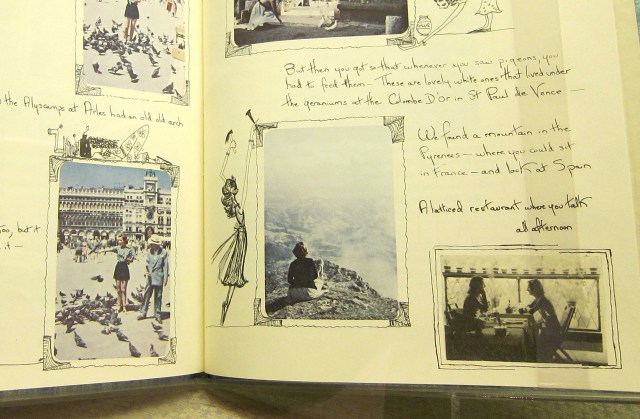 the Alyscamps at Arles had an old old arch
too, but it
it —
But then you got so that whenever you saw pigeons, you
had to feed them — These are lovely white ones that lived under
the geraniums at the Colombe D'or in St Paul de Vence —
We found a mountain in the
Pyrenees — where you could sit
in France — and look at Spain
A latticed restaurant where you talk
all afternoon